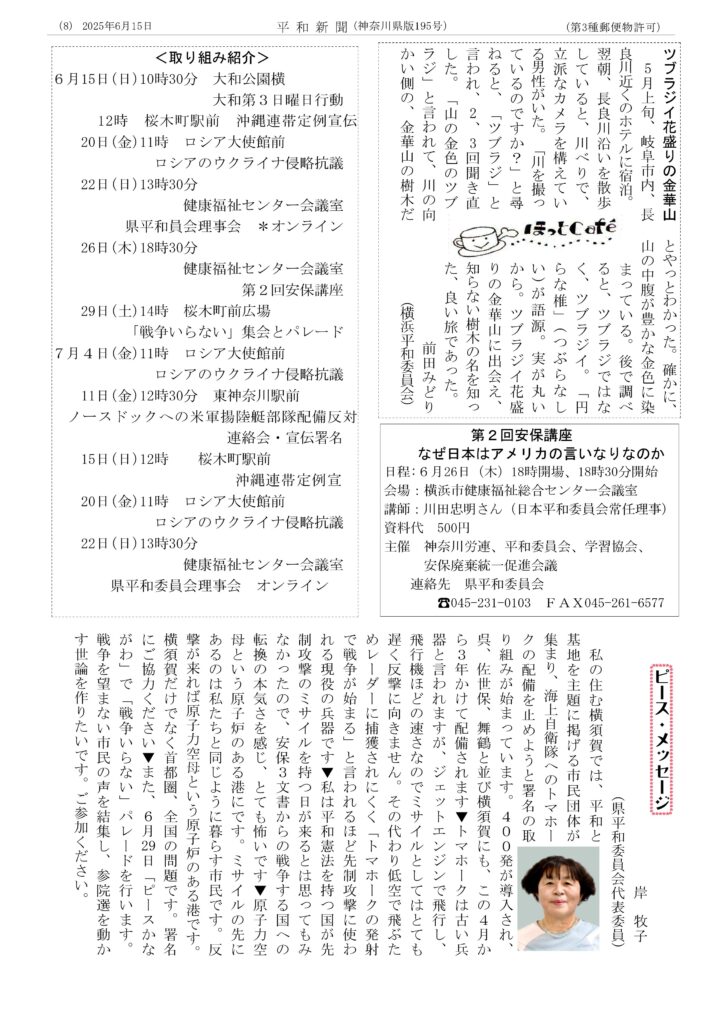 (8) 2025年6月15日
平和新聞(神奈川県版195号)
(第3種郵便物許可)
ツブラジイ花盛りの金華山
5月上旬、岐阜市内、長
良川近くのホテルに宿泊。
翌朝、長良川沿いを散歩
していると、川べりで、
立派なカメラを構えてい
る男性がいた。「川を撮っ
ているのですか?」と尋
ねると、「ツブラジ」と
言われ、2、3回聞き直
した。「山の金色のツブ
ラジ」と言われて、川の向
かい側の、金華山の樹木だ
ほっとCafé
とやっとわかった。確かに、
山の中腹が豊かな金色に染
まっている。後で調べ
ると、ツブラジではな
く、ツブラジイ。「円
らな椎」(つぶらなし
い)が語源。実が丸い
から。ツブラジイ花盛
りの金華山に出会え、
知らない樹木の名を知っ
た、良い旅であった。
前田みどり
(横浜平和委員会)
<取り組み紹介>
6月15日(日)10時30分 大和公園横
大和第3日曜日行動
12時 桜木町駅前 沖縄連帯定例宣伝
20日(金)11時 ロシア大使館前
ロシアのウクライナ侵略抗議
22日(日)13時30分
健康福祉センター会議室
県平和員会理事会 *オンライン
26日(木)18時30分
健康福祉センター会議室
第2回安保講座
29日(土)14時 桜木町前広場
「戦争いらない」集会とパレード
7月4日(金)11時 ロシア大使館前
ロシアのウクライナ侵略抗議
11日(金)12時30分 東神奈川駅前
ノースドックへの米軍揚陸艇部隊配備反対
連絡会・宣伝署名
15日(日)12時 桜木町駅前
沖縄連帯定例宣
20日(金)11時 ロシア大使館前
ロシアのウクライナ侵略抗議
22日(日)13時30分
健康福祉センター会議室
県平和委員会理事会 オンライン
第2回安保講座
なぜ日本はアメリカの言いなりなのか
日程:6月26日(木)18時開場、18時30分開始
会場:横浜市健康福祉総合センター会議室
講師:川田忠明さん(日本平和委員会常任理事)
資料代 500円
主催 神奈川労連、平和委員会、学習協会、
安保廃棄統一促進会議
連絡先 県平和委員会
☎045-231-0103 FAX045-261-6577
ピース・メッセージ
岸 牧子
(県平和委員会代表委員)
私の住む横須賀では、平和と
基地を主題に掲げる市民団体が
集まり、海上自衛隊へのトマホー
クの配備を止めようと署名の取
り組みが始まっています。400発が導入され、
呉、佐世保、舞鶴と並び横須賀にも、この4月か
ら3年かけて配備されます▼トマホークは古い兵
器と言われますが、ジェットエンジンで飛行し、
飛行機ほどの速さなのでミサイルとしてはとても
遅く反撃に向きません。その代わり低空で飛ぶた
めレーダーに捕獲されにくく「トマホークの発射
で戦争が始まる」と言われるほど先制攻撃に使わ
れる現役の兵器です▼私は平和憲法を持つ国が先
制攻撃のミサイルを持つ日が来るとは思ってもみ
なかったので、安保3文書からの戦争する国への
転換の本気さを感じ、とても怖いです▼原子力空
母という原子炉のある港にです。ミサイルの先に
あるのは私たちと同じように暮らす市民です。反
撃が来れば原子力空母という原子炉のある港です。
横須賀だけでなく首都圏、全国の問題です。署名
にご協力ください▼また、6月29日「ピースかな
がわ」で「戦争いらない」パレードを行います。
戦争を望まない市民の声を結集し、参院選を動か
す世論を作りたいです。ご参加ください。